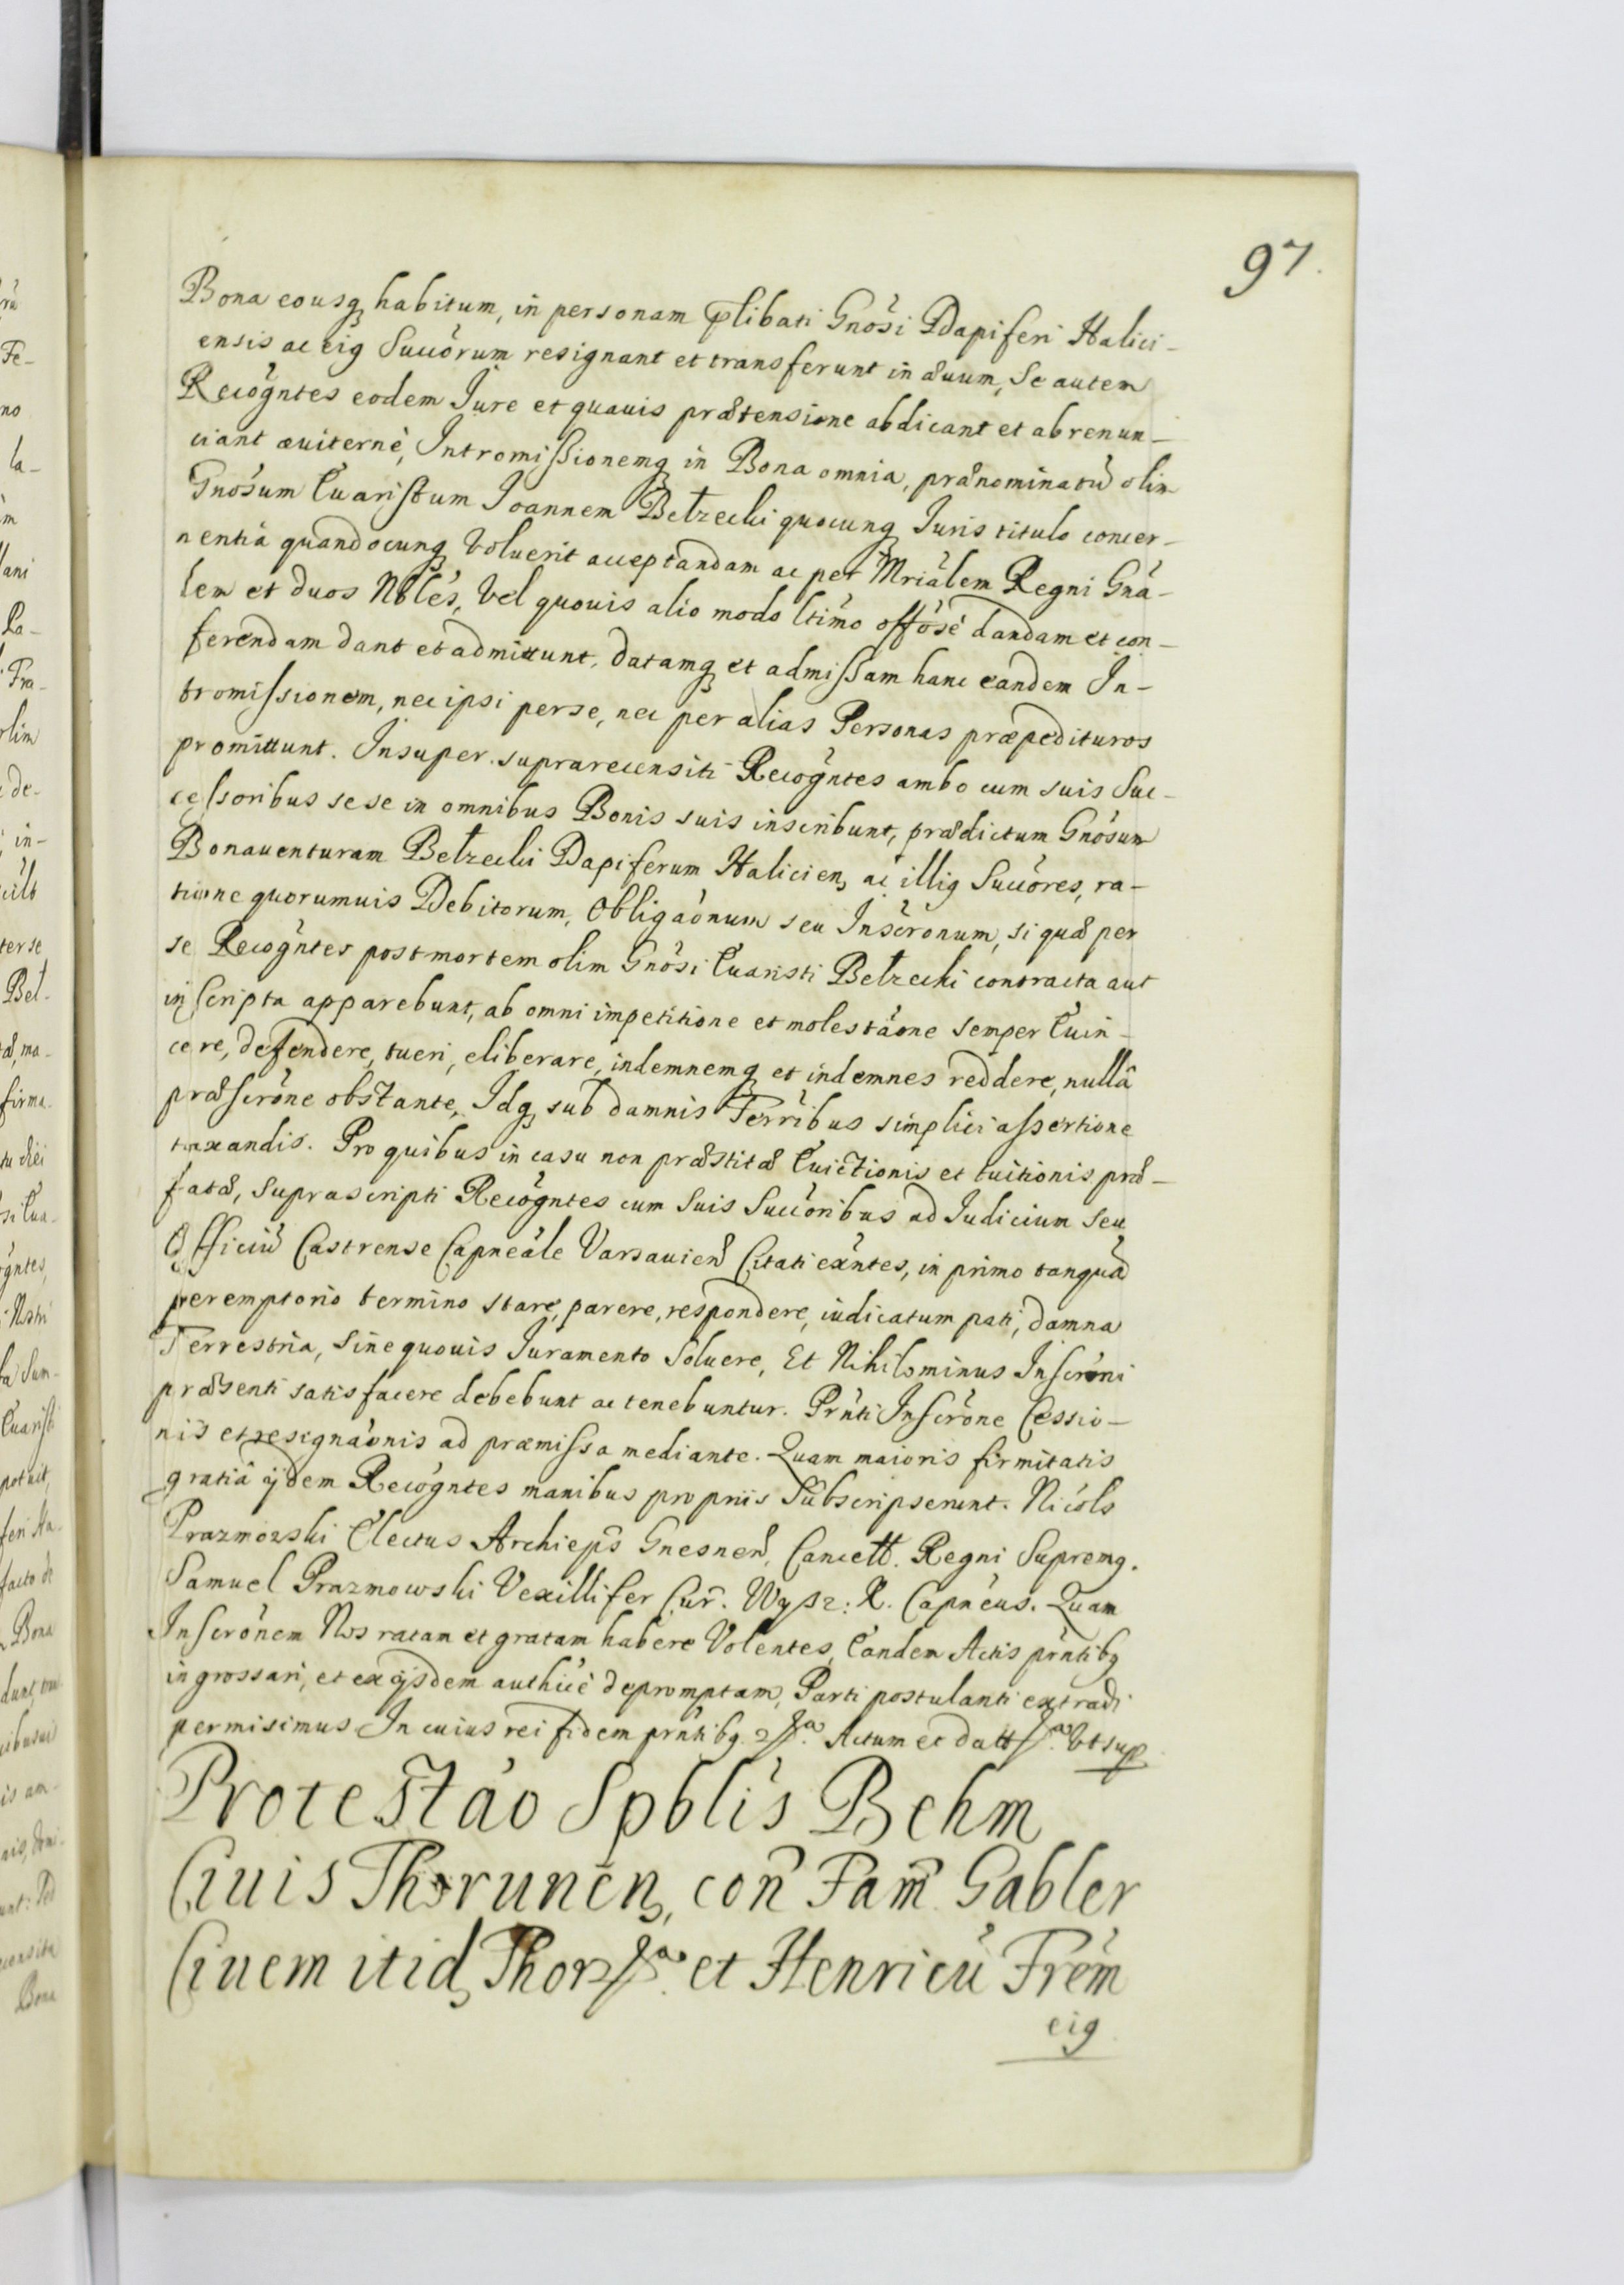 97.
Bona eousq habitum, in personam plibati Gnosi Dapiferi Halici-
ensis ac eig Succorum resignant et transferunt in æuum, Se autem
Recogntes eodem Jure et quauis prætensione abdicant et abrenun-
ciant æuiternè, Intromissionemq in Bona omnia, prænominatū olim
Gnosum Euaristum Joannem Bełzecki quocunq Juris titulo concer-
nentia quandocunq Voluerit acceptandam ac per Mrialem Regni Gna-
lem et duos Nobles, Vel quouis alio modo ltimo offose dandam et con-
ferendam dant et admittunt, datamq et admissam hanc eandem In-
tromissionem, nec ipsi per se, nec per alias Personas præpedituros
promittunt. Insuper suprarecensiti Recogntes ambo cum suis Suc-
cessoribus sese in omnibus Bonis suis inscribunt, prædictum Gnosum
Bonauenturam Bełzecki Dapiferum Halicien, ac illig Succores, ra-
tione quorumuis Debitorum, Obligaonum seu Inscronum, si quæ per
se Recogntes post mortem olim Gnosi Euaristi Bełzecki contracta aut
inscripta apparebunt, ab omni impetitione et molestaone semper Euin-
cere, defendere, tueri, eliberare, indemnemq et indemnes reddere, nullâ
præscrone obstante, Idq sub damnis Terribus simplici assertione
taxandis. Pro quibus in casu non præstitæ Euictionis et tuitionis præ-
fatæ, suprascripti Recogntes cum Suis Succoribus ad Judicium seu
Officiū Castrense Capneale Varsauien Citati exntes, in primo tanquā
peremptorio termino stare, parere, respondere, iudicatum pati, damna
Terrestria, sine quouis Juramento Soluere, Et Nihilominus Inscroni
præsenti satisfacere debebunt ac tenebuntur. Prnti Inscrone Cessio-
nis et resignaonis ad præmissa mediante. Quam maioris firmitatis
gratiâ ijdem Recogntes manibus proprijs Subscripserunt. Nicols
Prazmowski Electus Archieps Gnesnen, Cancell. Regni Supremg.
Samuel Prazmowski Vexillifer Cur. Wysz: R. Capneus. Quam
Inscronem Nos ratam et gratam habere Volentes, Eandem Actis prntibg
ingrossari, et ex ijsdem authce depromptam, Parti postulanti extradi
permisimus In cuius rei fidem prntibg Actum et datt Vt sup
Protestao Spblis Behm
Ciuis Thorunen, con Fam Gabler
Ciuem itid Thor et Henricū Frem
eig